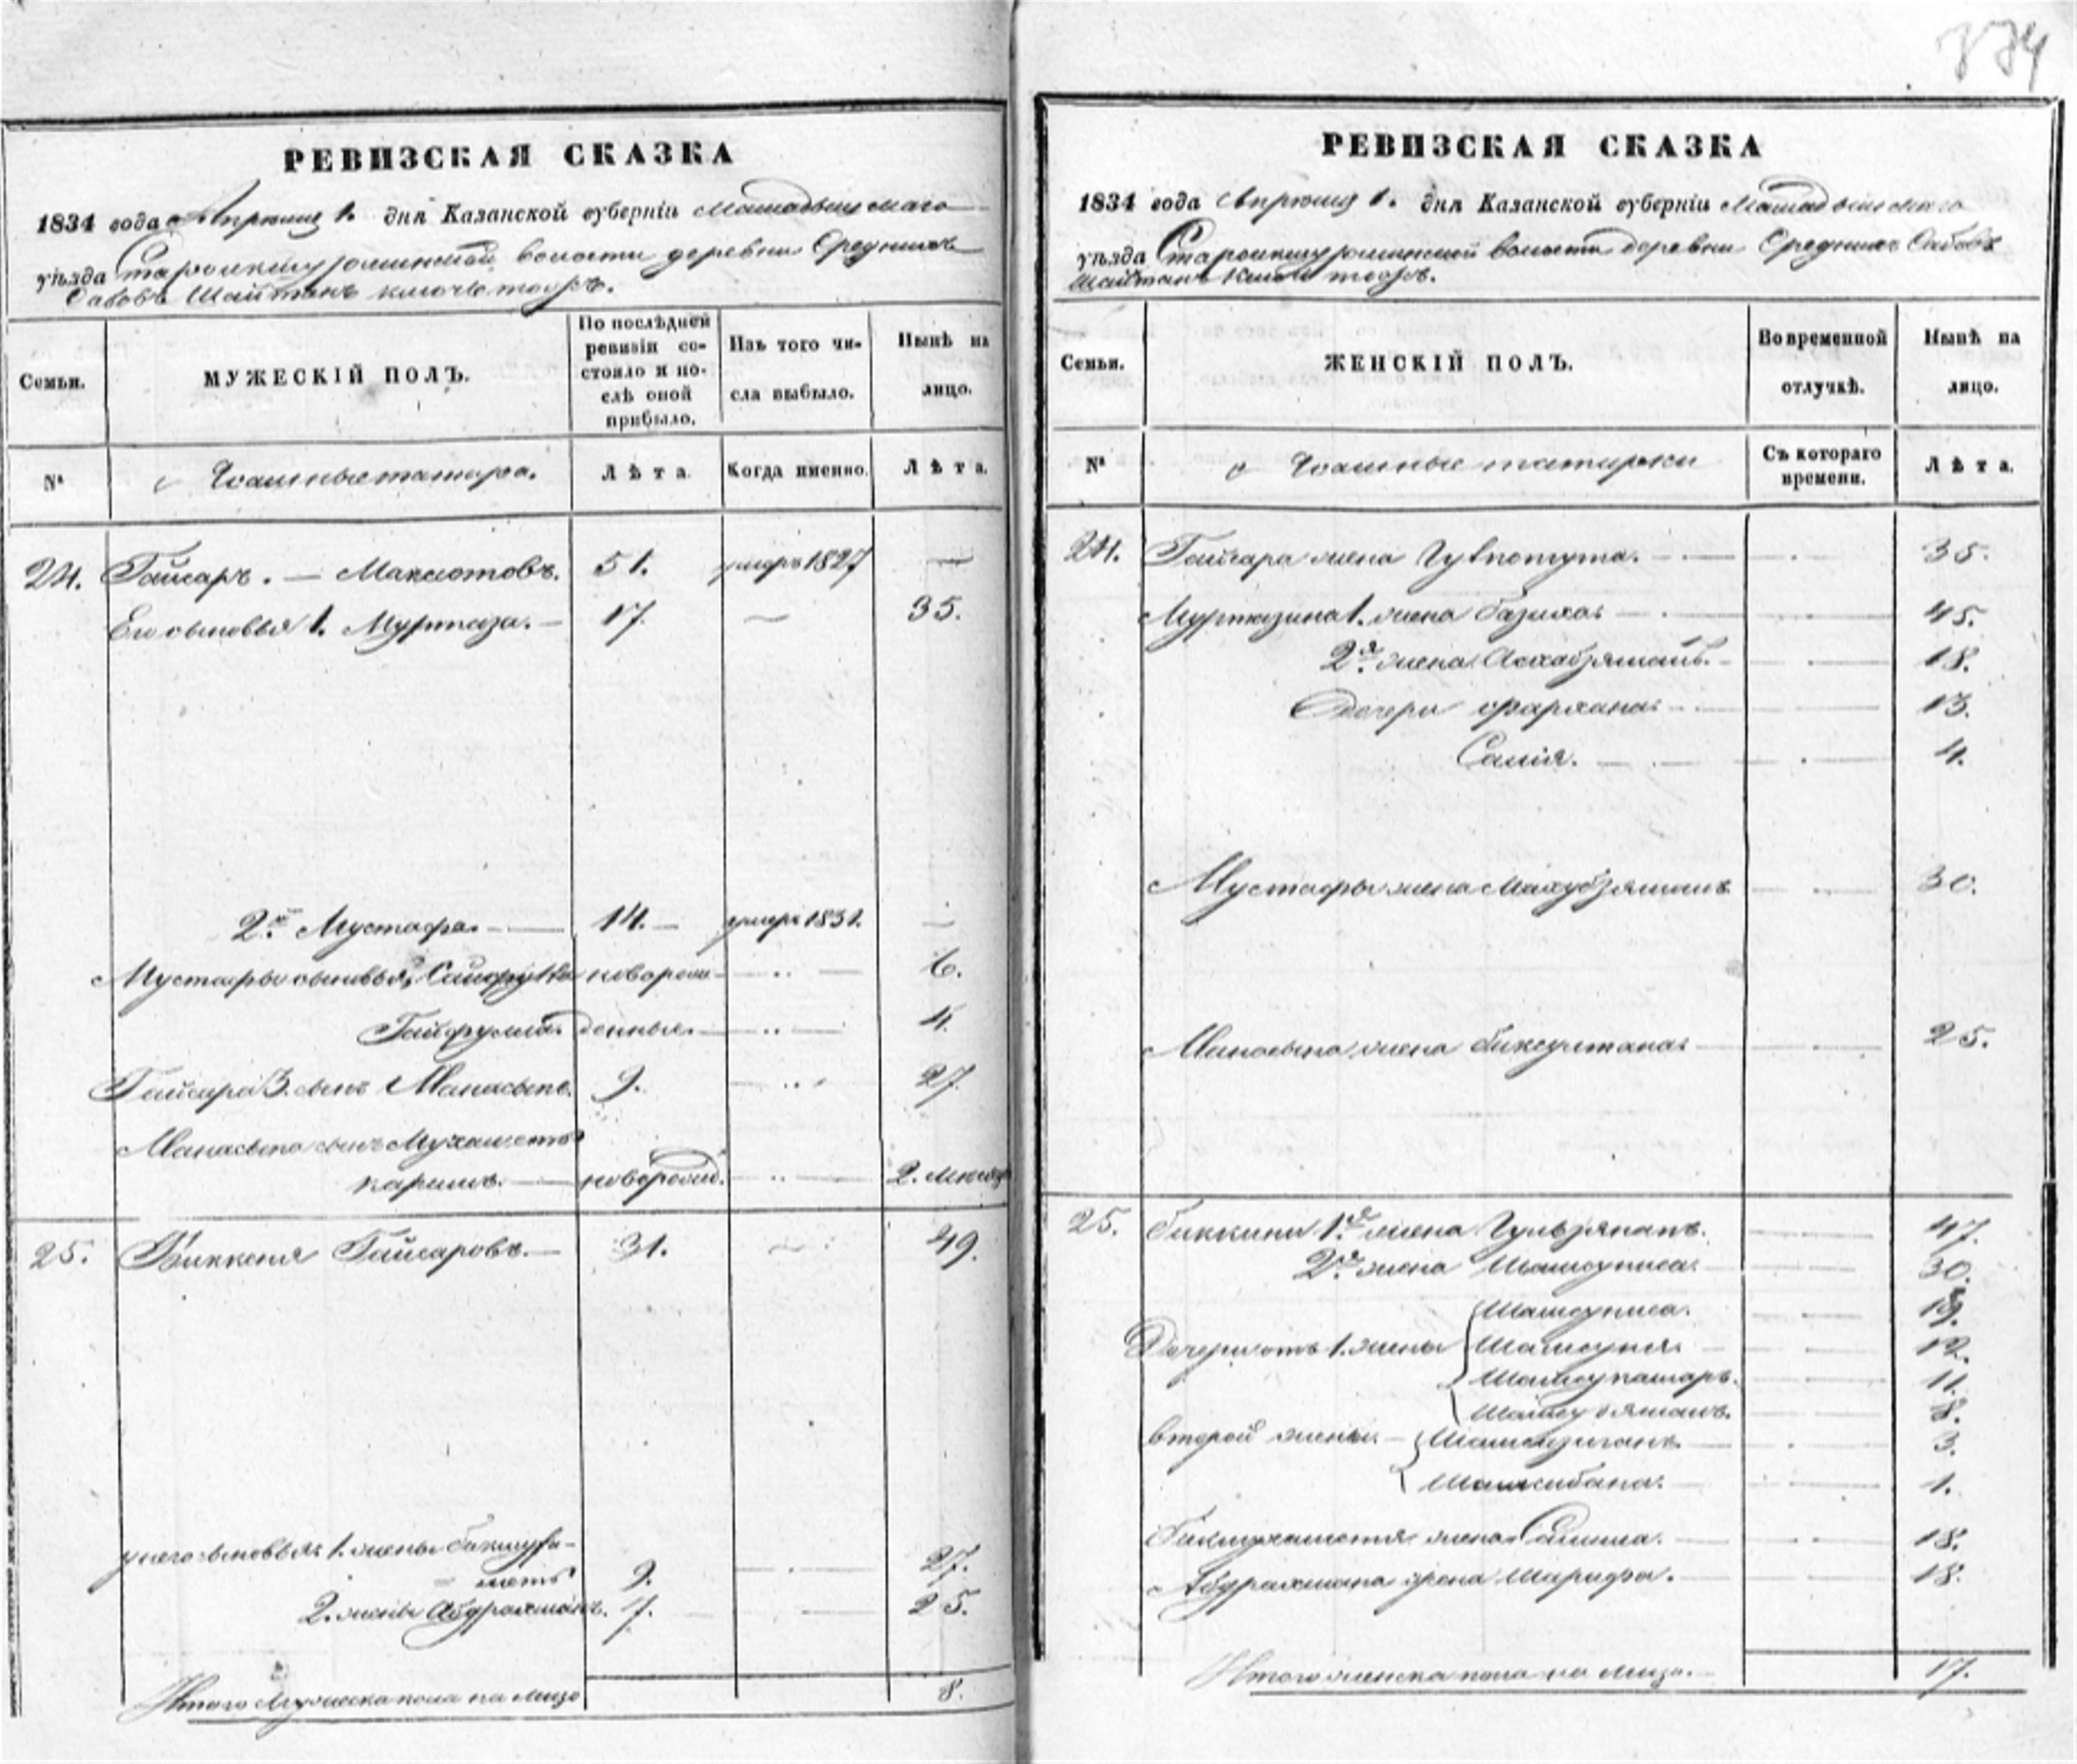 РЕВИЗСКАЯ СКАЗКА
1834 года Апреля 1. дня Казанской губерніи Мамадышскаго
уѣзда Старокишу волости деревни Среднихъ
Сабовъ Шайтанъ ключь тожъ.
Семьи.
МУЖЕСКІЙ ПОЛЪ.
По послѣдней ревизіи состояло и послѣ оной прибыло.
Изъ того числа выбыло.
Нынѣ на лицо.
№
татара.
Лѣта.
Когда именно.
Лѣта.
24. Гайсаръ. — Максютовъ. 51. умеръ 1827 —
Его сыновья 1. Муртаза. — 17. — 35.
2й Мустафа. — 14. — умеръ 1831. —
Мустафы сыновья, новорож- 6.
денные. — 4.
Гайсара 3. сынъ Манасыпъ. 9. 27
Манасыпа сынъ Мухаметъ
каримъ. — новорожд. 2. мѣсяца
25. Биккеня Гайсаровъ. — 31. — 49.
у него сыновья 1. жены Бикмуха-
метъ 9. 27.
2. жены Абдрахманъ. 7. 25.
Итого Мужеска пола на лицо 8.
РЕВИЗСКАЯ СКАЗКА
1834 года Апреля 1. дня Казанской губерніи Мамадышскаго
уѣзда Старокишу волости деревни Среднихъ Сабовъ
Шайтанъ Ключь тожъ.
Семьи.
ЖЕНСКІЙ ПОЛЪ.
Во временной отлучкѣ.
Нынѣ на лицо.
№
татарки
Съ котораго времени.
Лѣта.
24. Гайсара жена 35.
Муртазина 1. жена Базиха. 45.
2я жена 18.
Дочери Фархана. 13.
Салія. 4.
Мустафы жена 30.
Манасыпа жена Биксултана. 25.
25. Биккини 1я жена Гульзянапъ. 47.
2я жена Шамсуниса. 30.
Шамсуниса. 19.
Дочери отъ 1. жены 12.
Шамсукамаръ. 11.
8.
второй жены — 3.
Шамсибана. 1.
Бикмухаметя жена Салима. 18.
Абдрахмана жена Шарифа. 18.
Итого женска пола на лицо. 17.